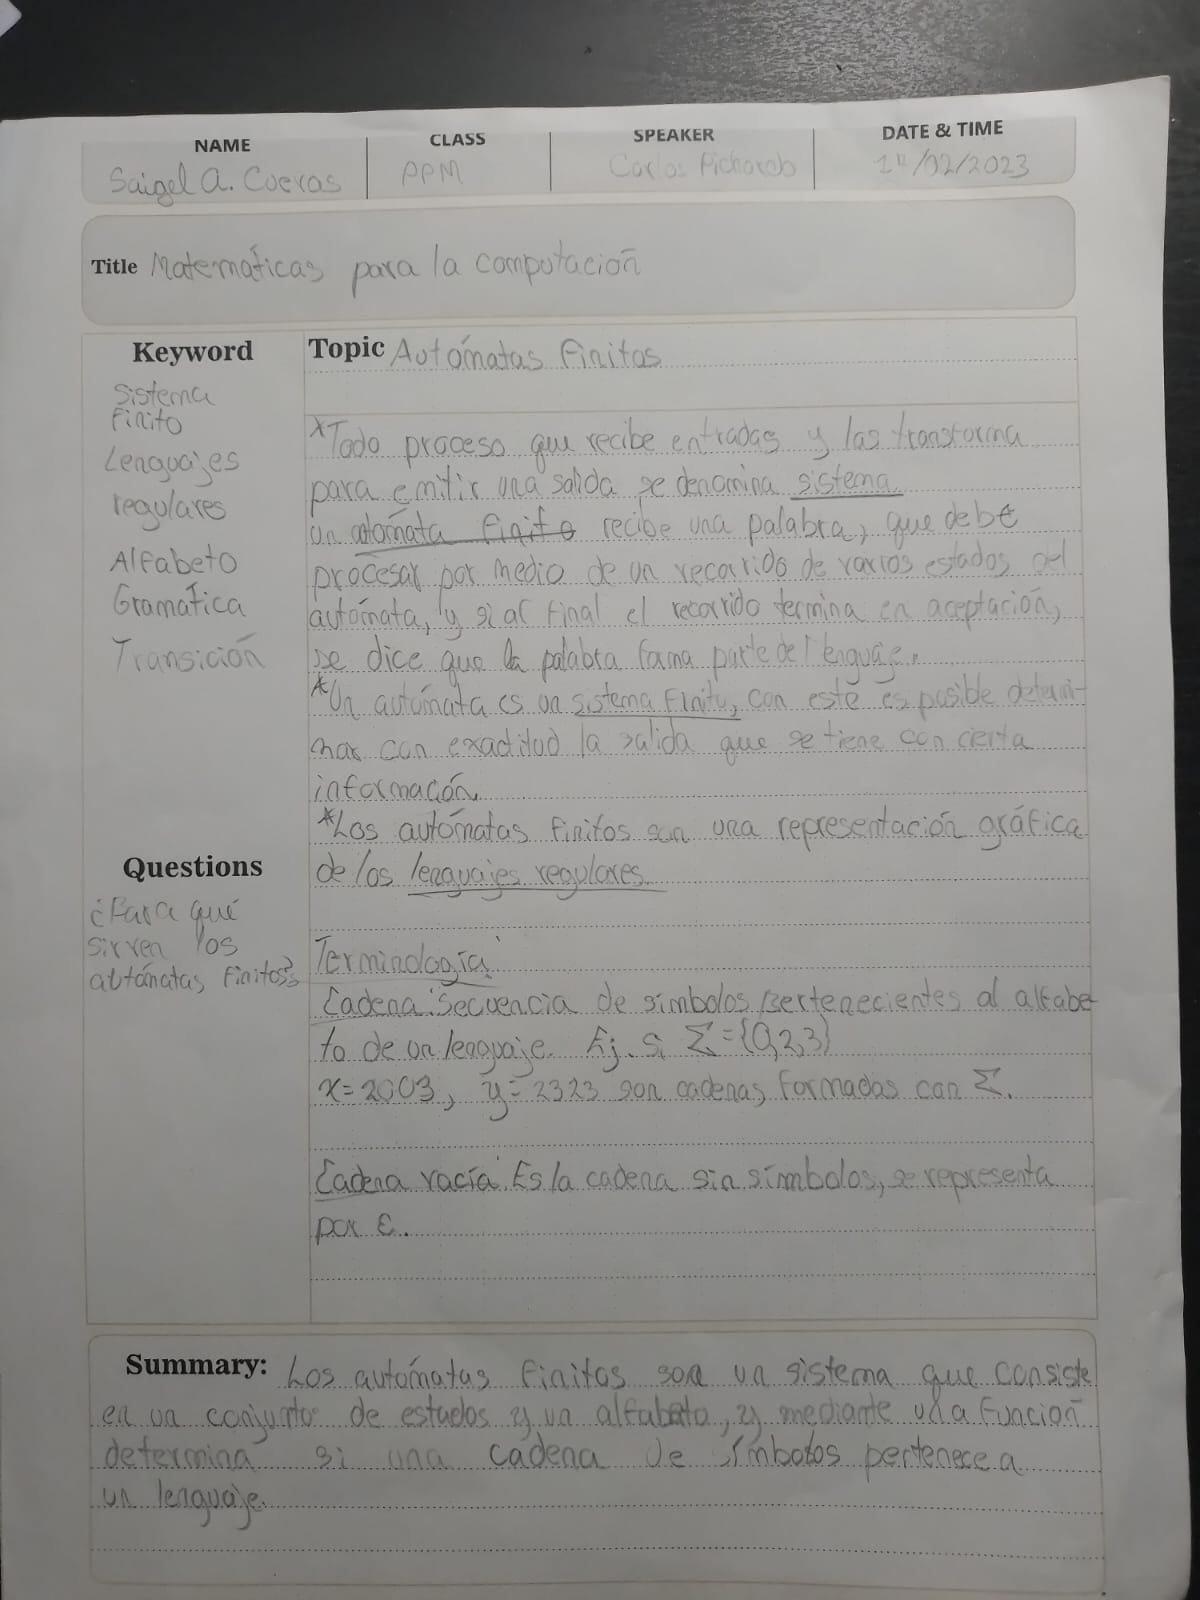 NAME
CLASS
SPEAKER
DATE & TIME
Saigel A. Cuevas
PPM
Carlos Pichardo
14/02/2023
Title Matemáticas para la computación
Keyword
Sistema
finito
Lenguajes
regulares
Alfabeto
Gramática
Transición
Questions
¿Para qué
sirven los
autómatas finitos?
Topic Autómatas finitos
*Todo proceso que recibe entradas y las transforma
para emitir una salida se denomina sistema.
Un autómata finito recibe una palabra, que debe
procesar por medio de un recorrido de varios estados del
autómata, y si al final el recorrido termina en aceptación,
se dice que la palabra forma parte del lenguaje.
*Un autómata es un sistema finito, con este es posible determi-
nar con exactitud la salida que se tiene con cierta
información.
*Los autómatas finitos son una representación gráfica
de los lenguajes regulares.
Terminología
Cadena: Secuencia de símbolos pertenecientes al alfabe-
to de un lenguaje. Ej. Si Σ={0,2,3}
x=2003, y=2323 son cadenas formadas con Σ.
Cadena vacía: Es la cadena sin símbolos, se representa
por ε.
Summary: Los autómatas finitos son un sistema que consiste
en un conjunto de estados y un alfabeto, y mediante una función
determina si una cadena de símbolos pertenece a
un lenguaje.